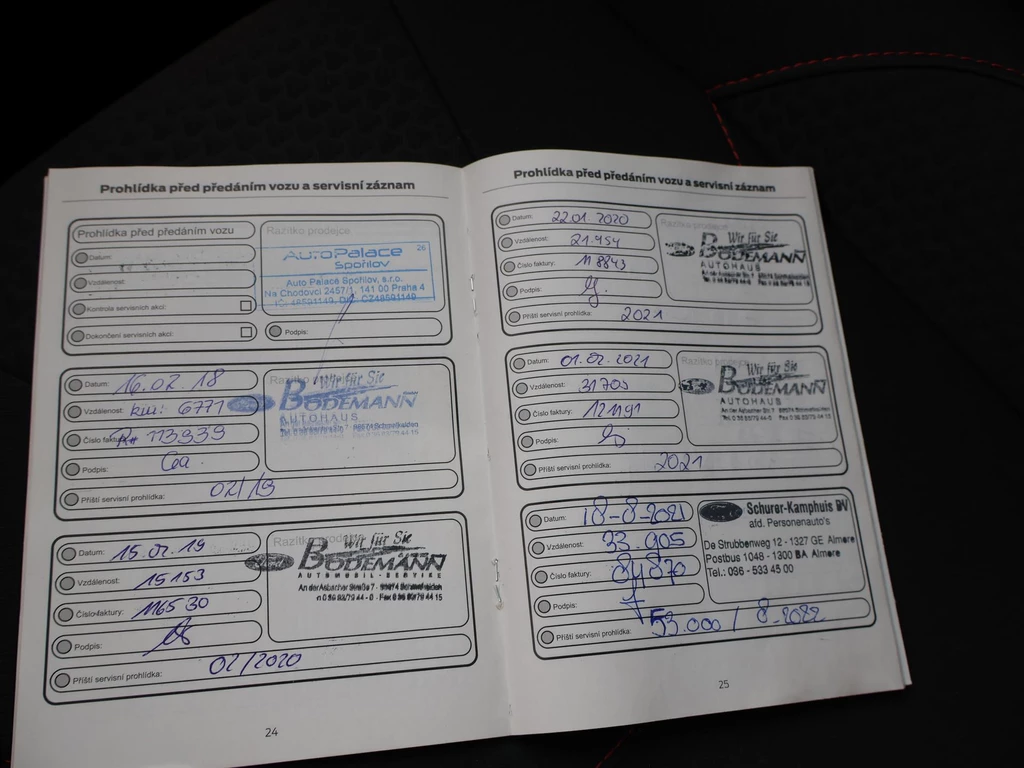 Prohlídka před předáním vozu a servisní záznam
Prohlídka před předáním vozu
Datum:
Vzdálenost:
Kontrola servisních akcí:
Dokončení servisních akcí:
Razítko prodejce
AUTOPALACE 26
Spořilov
Auto Palace Spořilov, s.r.o.
Na Chodovci 2457/1, 141 00 Praha 4
IČ: 48591149, DIČ: CZ48591149
Podpis:
Datum: 16.02.18
Vzdálenost: km: 6771
Číslo faktury: 113939
Podpis:
Příští servisní prohlídka: 02/19
Razítko prodejce
Wir für Sie
BODEMANN
AUTOHAUS
Datum: 15.02.19
Vzdálenost: 15153
Číslo faktury: 116530
Podpis:
Příští servisní prohlídka: 02/2020
Razítko prodejce
Wir für Sie
BODEMANN
AUTOMOBIL-SERVICE
24
Prohlídka před předáním vozu a servisní záznam
Datum: 22.01.2020
Vzdálenost: 21.954
Číslo faktury: 118843
Podpis:
Příští servisní prohlídka: 2021
Razítko prodejce
Wir für Sie
BODEMANN
AUTOHAUS
Datum: 01.02.2021
Vzdálenost: 31705
Číslo faktury: 121191
Podpis:
Příští servisní prohlídka: 2021
Razítko prodejce
Wir für Sie
BODEMANN
AUTOHAUS
Datum: 18-8-2021
Vzdálenost: 33.905
Číslo faktury: 84870
Podpis:
Příští servisní prohlídka: 53.000 / 8-2022
Ford
Schurer-Kamphuis BV
afd. Personenauto's
De Strubbenweg 12 - 1327 GE Almere
Postbus 1048 - 1300 BA Almere
Tel.: 036 - 533 45 00
25